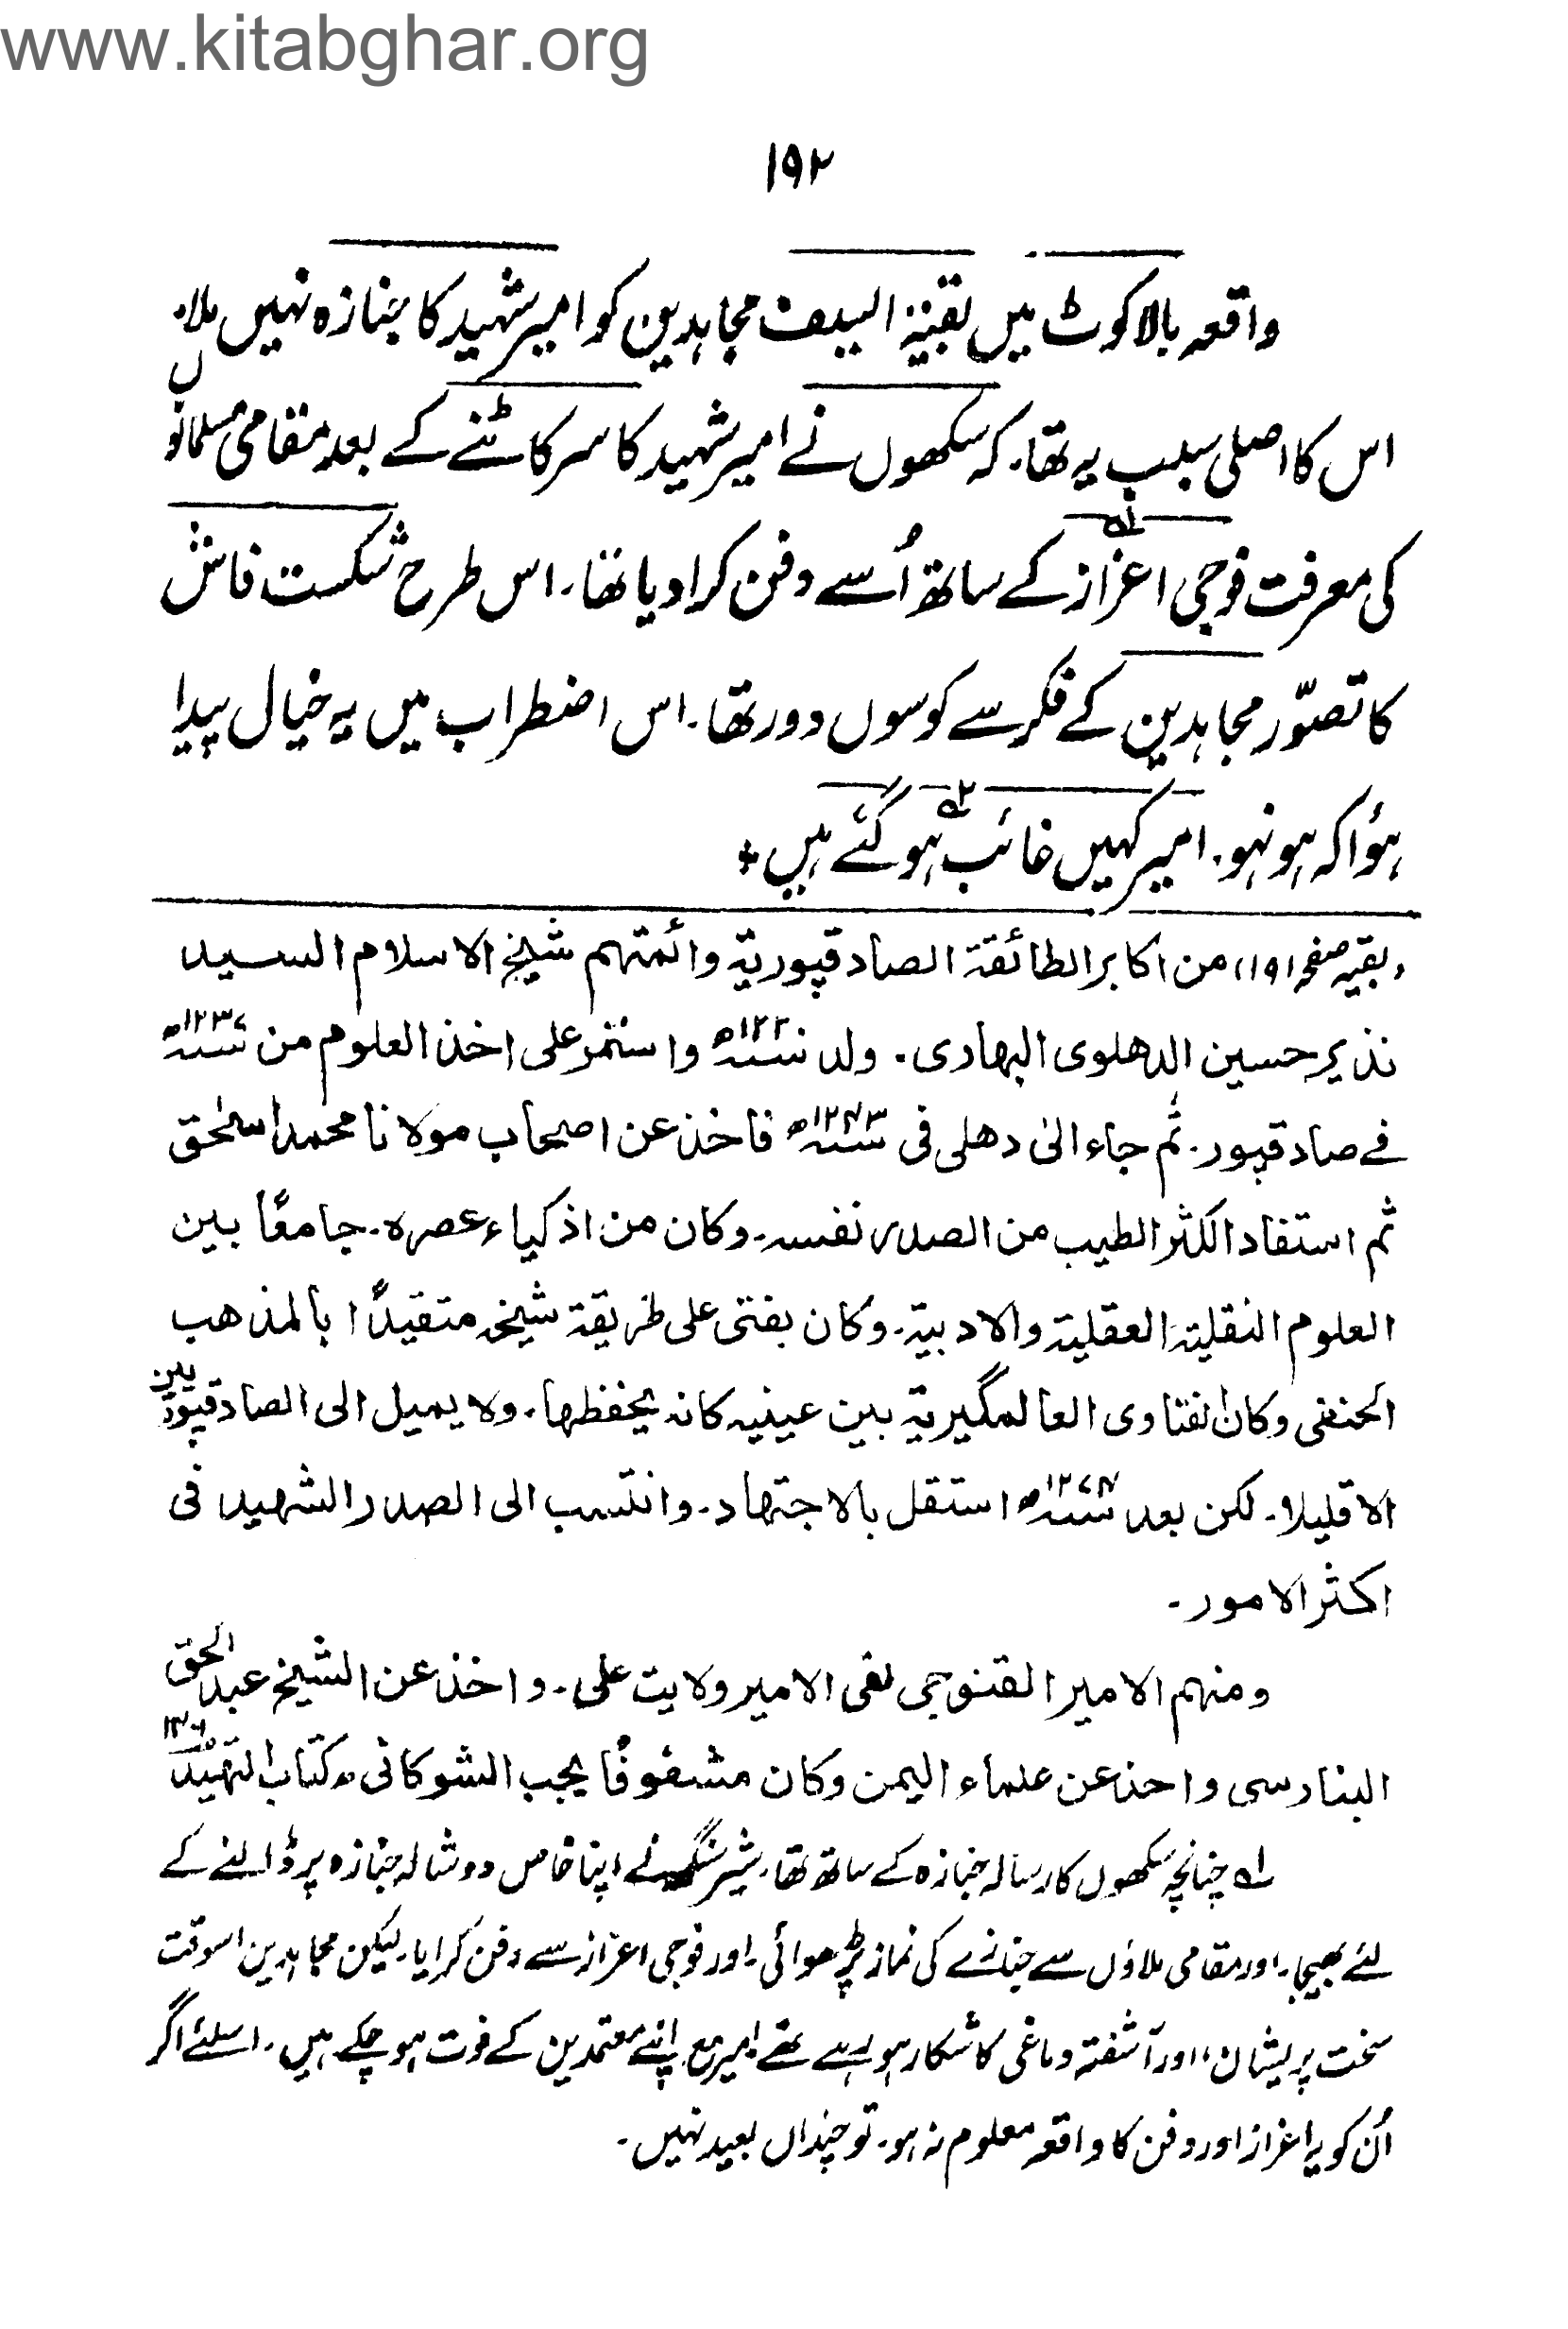 www.kitabghar.org
۱۹۲
واقعہ بالاکوٹ میں بقیۃ السیف مجاہدین کو امیر شہید کا جنازہ نہیں ملا۔
اس کا اصلی سبب یہ تھا۔ کہ سکھوں نے امیر شہید کا سر کاٹنے کے بعد مقامی مسلمانوں
کی معرفت فوجی اعزاز کے ساتھ اُسے دفن کرا دیا تھا۔ اس طرح شکست فاش
کا تصوّر مجاہدین کے فکر سے کوسوں دور تھا۔ اس اضطراب میں یہ خیال پیدا
ہؤا کہ ہو نہو۔ امیر کہیں غائب ہو گئے ہیں
بقیہ صفحہ ۱۹۱) من اکابر الطائفۃ الصادقپوریۃ وائمتہم شیخ الاسلام السید
نذیر حسین الدھلوی البہاری۔ ولد سنۃ ۱۲۲۰ھ واستمر علی اخذ العلوم من سنۃ ۱۲۳۷ھ
فے صادقپور۔ ثم جاء الیٰ دھلی فی سنۃ ۱۲۴۳ھ فاخذ عن اصحاب مولانا محمد اسحٰق
ثم استفاد الکثر الطیب من الصدر نفسہ۔ وکان من اذکیاء عصرہ۔ جامعًا بین
العلوم النقلیۃ العقلیۃ والادبیۃ۔ وکان یفتی علی طریقۃ شیخہ متقیدًا بالمذھب
الحنفی وکان الفتاوی العالمگیریۃ بین عینیہ کانہ یحفظھا۔ ولا یمیل الی الصادقپوریین
الا قلیلا۔ لکن بعد سنۃ ۱۲۷۴ھ استقل بالاجتھاد۔ وانتسب الی الصدر الشہید فی
اکثر الامور۔
ومنہم الامیر القنوجی لقی الامیر ولایت علی۔ واخذ عن الشیخ عبد الحق
البنارسی واخذ عن علماء الیمن وکان مشغوفًا بحب الشوکانی کتاب التمہید
۱؎ چنانچہ سکھوں کا رسالہ جنازہ کے ساتھ تھا۔ شیر سنگھ نے اپنا خاص دوشالہ جنازہ پر ڈالنے کے
لئے بھیجا۔ اور مقامی ملاؤں سے جنازے کی نماز پڑھوائی۔ اور فوجی اعزاز سے دفن کرایا۔ لیکن مجاہدین اسوقت
سخت پریشان، اور آشفتہ دماغی کا شکار ہو رہے تھے امیر مع اپنے معتمدین کے فوت ہو چکے ہیں۔ اسلئے اگر
اُن کو یہ اعزاز اور دفن کا واقعہ معلوم نہ ہو۔ تو چنداں بعید نہیں۔